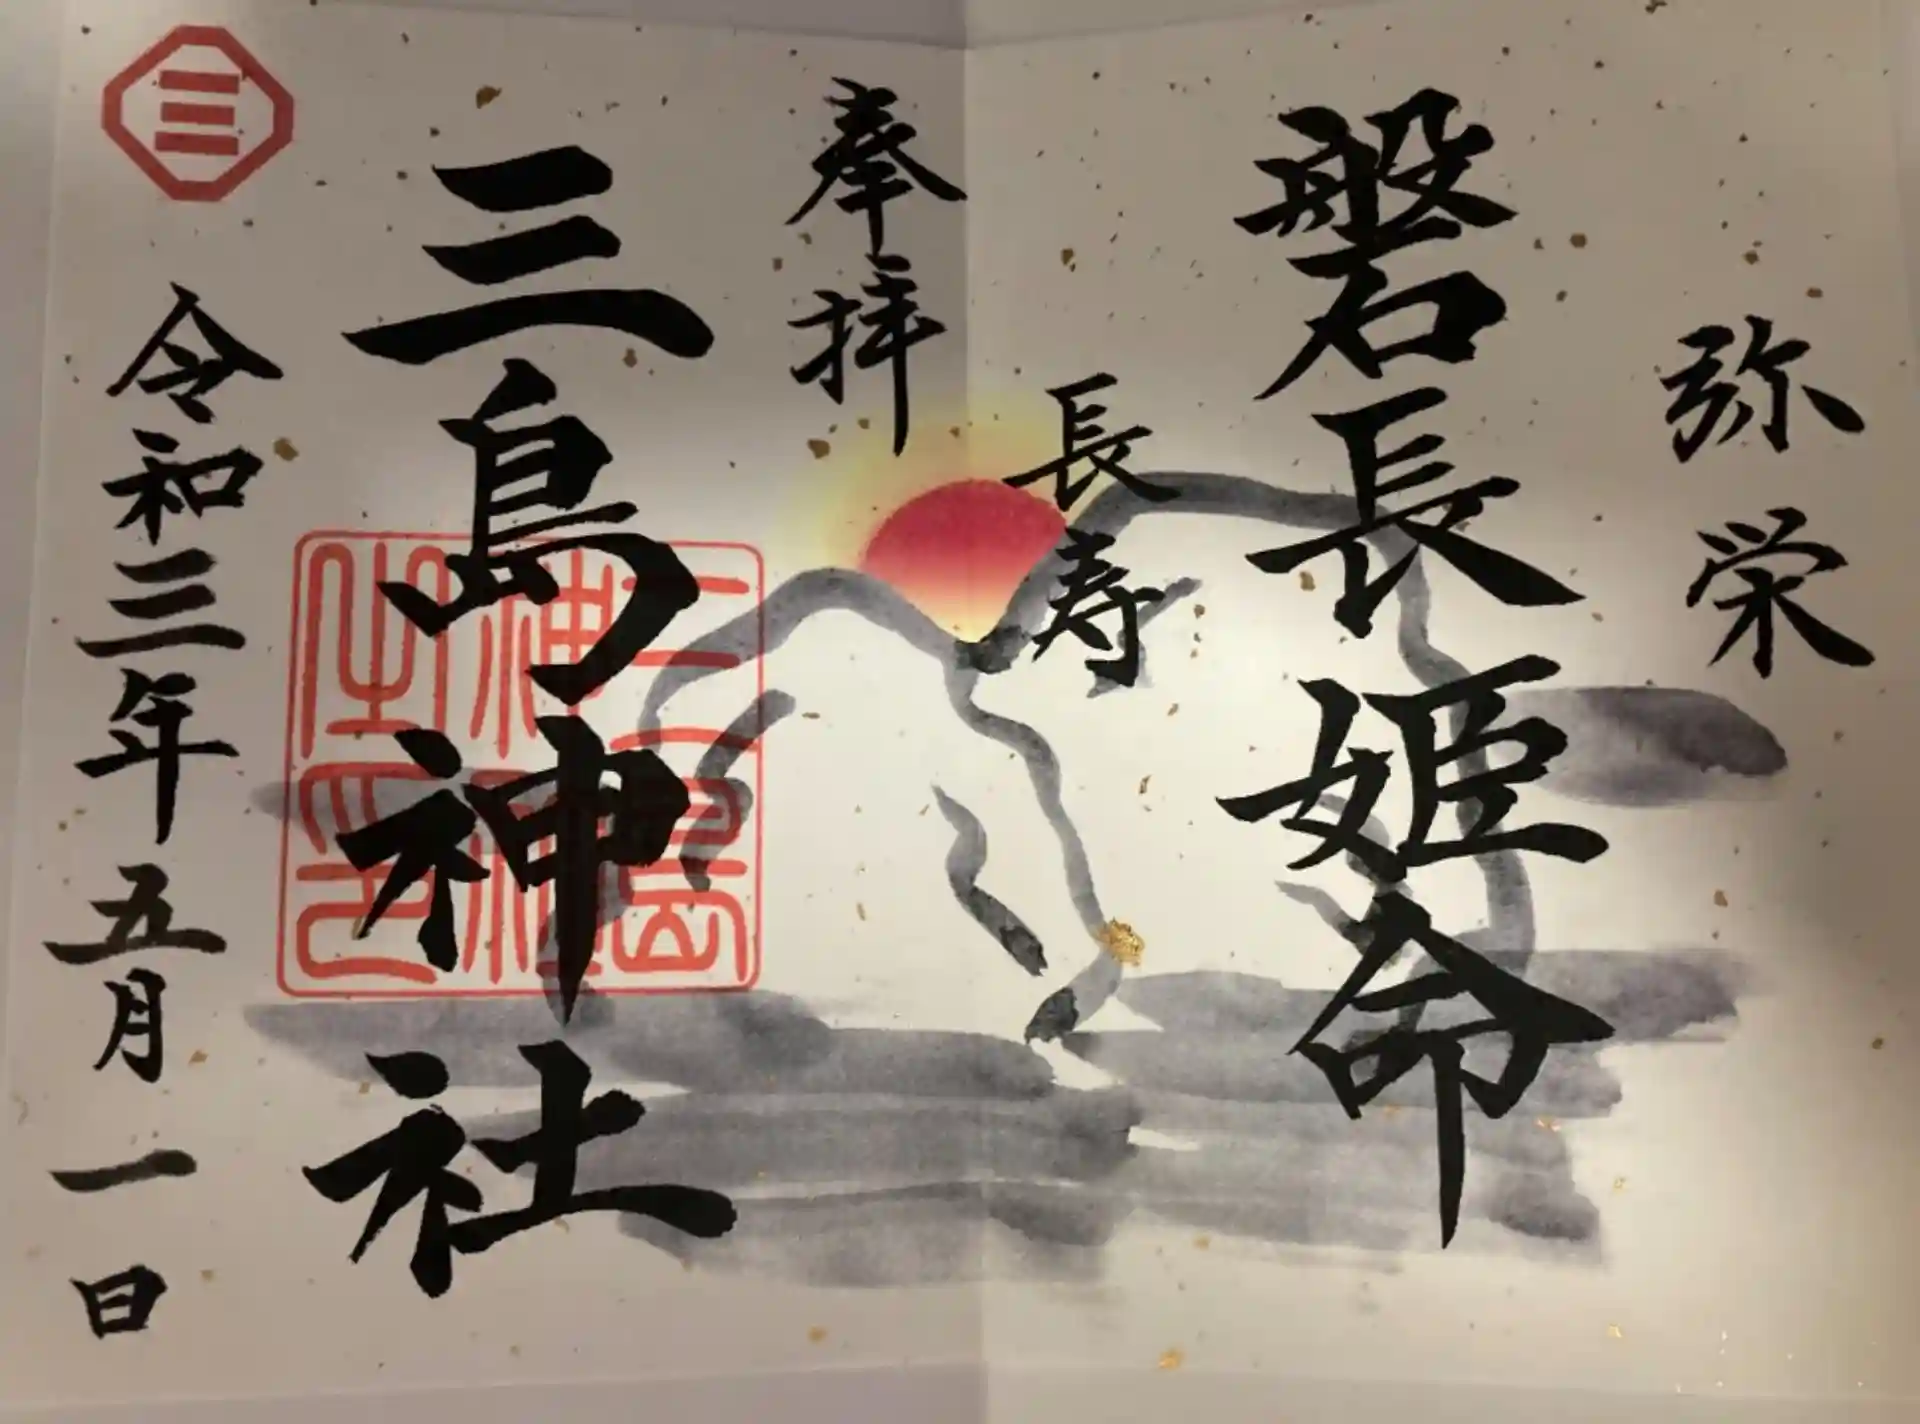 弥栄
磐長姫命
長寿
奉拝
三島神社
三島神社之印
三
令和三年五月一日